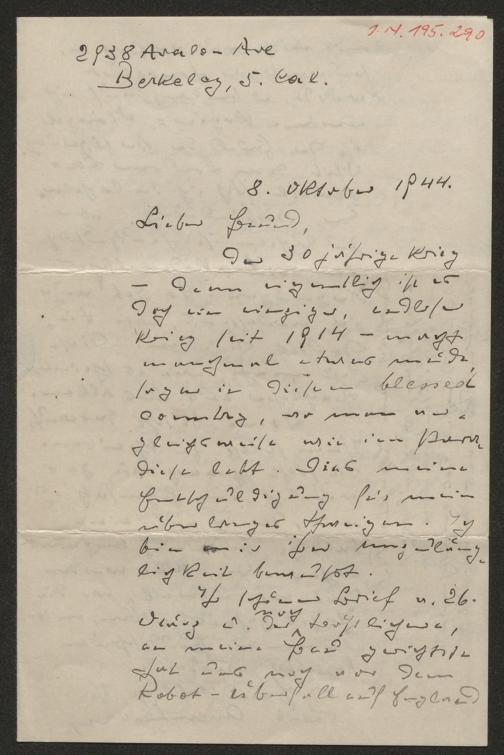 I.N. 195.290
2938 Avalon Ave
Berkeley, 5. Cal.
8. Oktober 1944.
Lieber Freund,
Der 30 jährige Krieg
– denn eigentlich ist es
doch ein einziger, endloser
Krieg seit 1914 – macht
manchmal etwas müde
sogar in diesem blessed
country, wo man ver-
gleichsweise wie im Para-
diese lebt. Dies meine
Entschuldigung für mein
überlanges Schweigen. Ich
bin mir ihrer Unzuläng-
lichkeit bewusst.
Ihr schöner Brief v. 26.
März u. der noch
an meine Frau gerichtete
hat uns noch vor dem
Robot-Überfall auf England